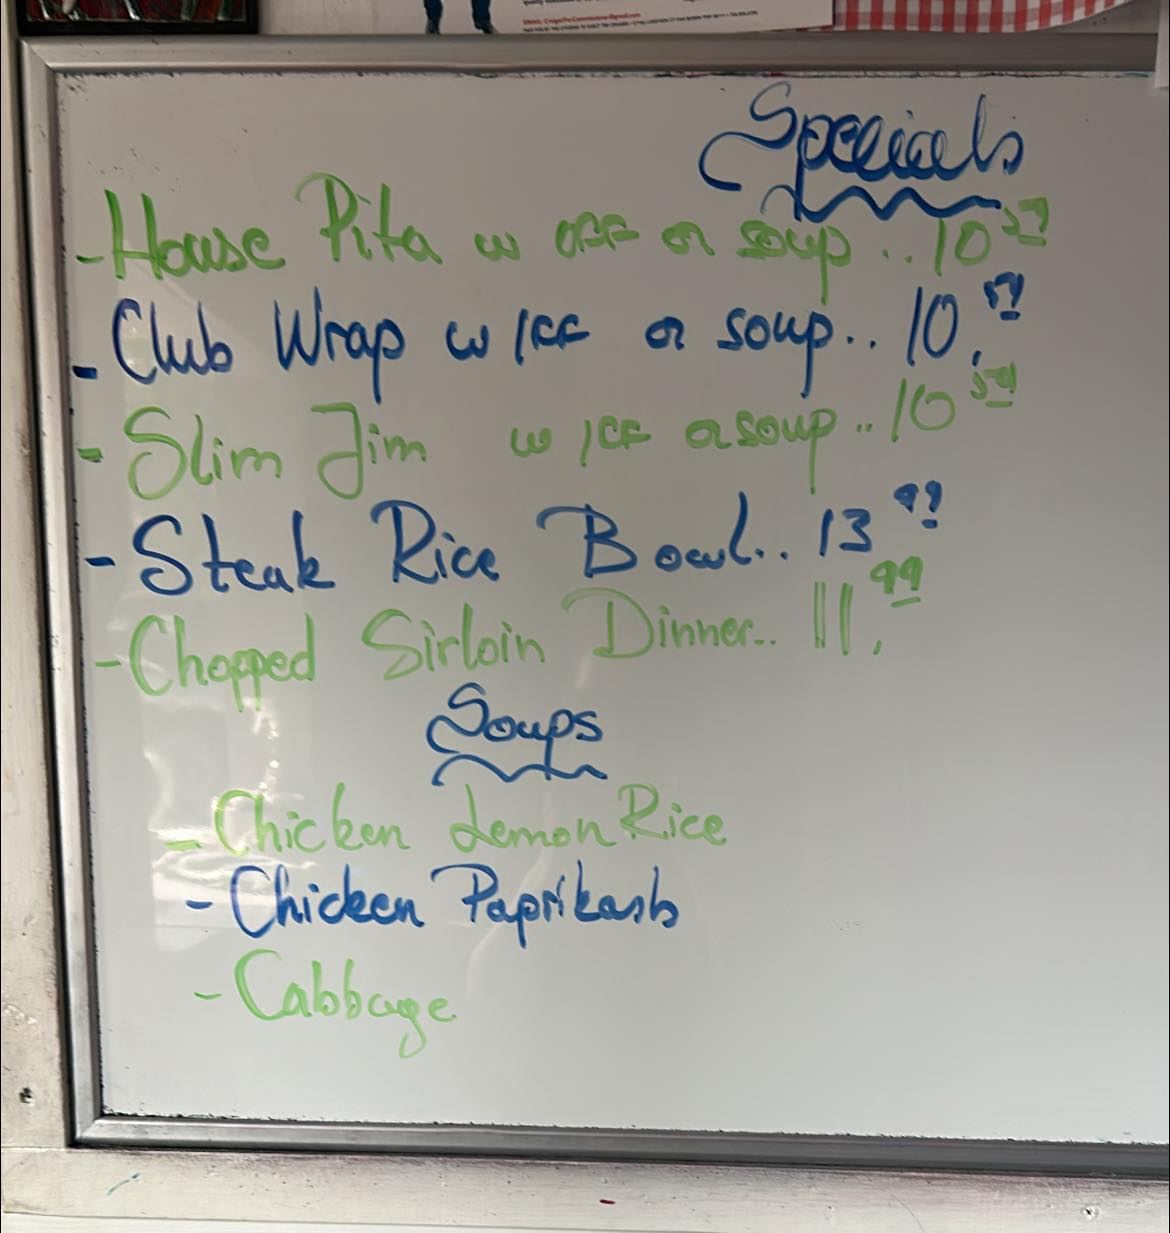 Specials
- House Pita w off or soup .. 10 59
- Club Wrap w/ff or soup.. 10. 59
- Slim Jim w/ff or soup .. 10 59
- Steak Rice Bowl.. 13 99
- Chopped Sirloin Dinner.. 11. 99
Soups
- Chicken Lemon Rice
- Chicken Paprikash
- Cabbage